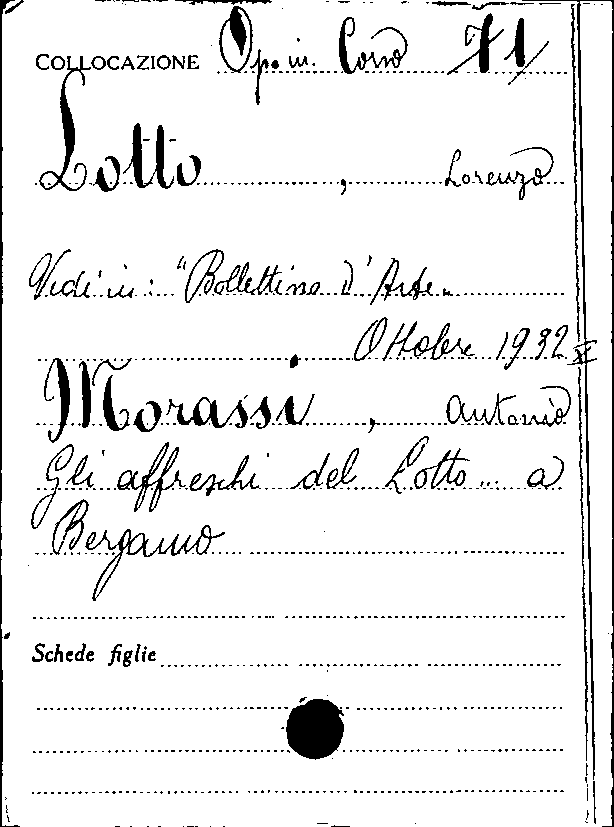 COLLOCAZIONE Op. in. Corso 71/
Lotto, Lorenzo
Vedi in: "Bollettino d'Arte"
Ottobre 1932 X
Morassi, Antonio
Gli affreschi del Lotto... a
Bergamo
Schede figlie